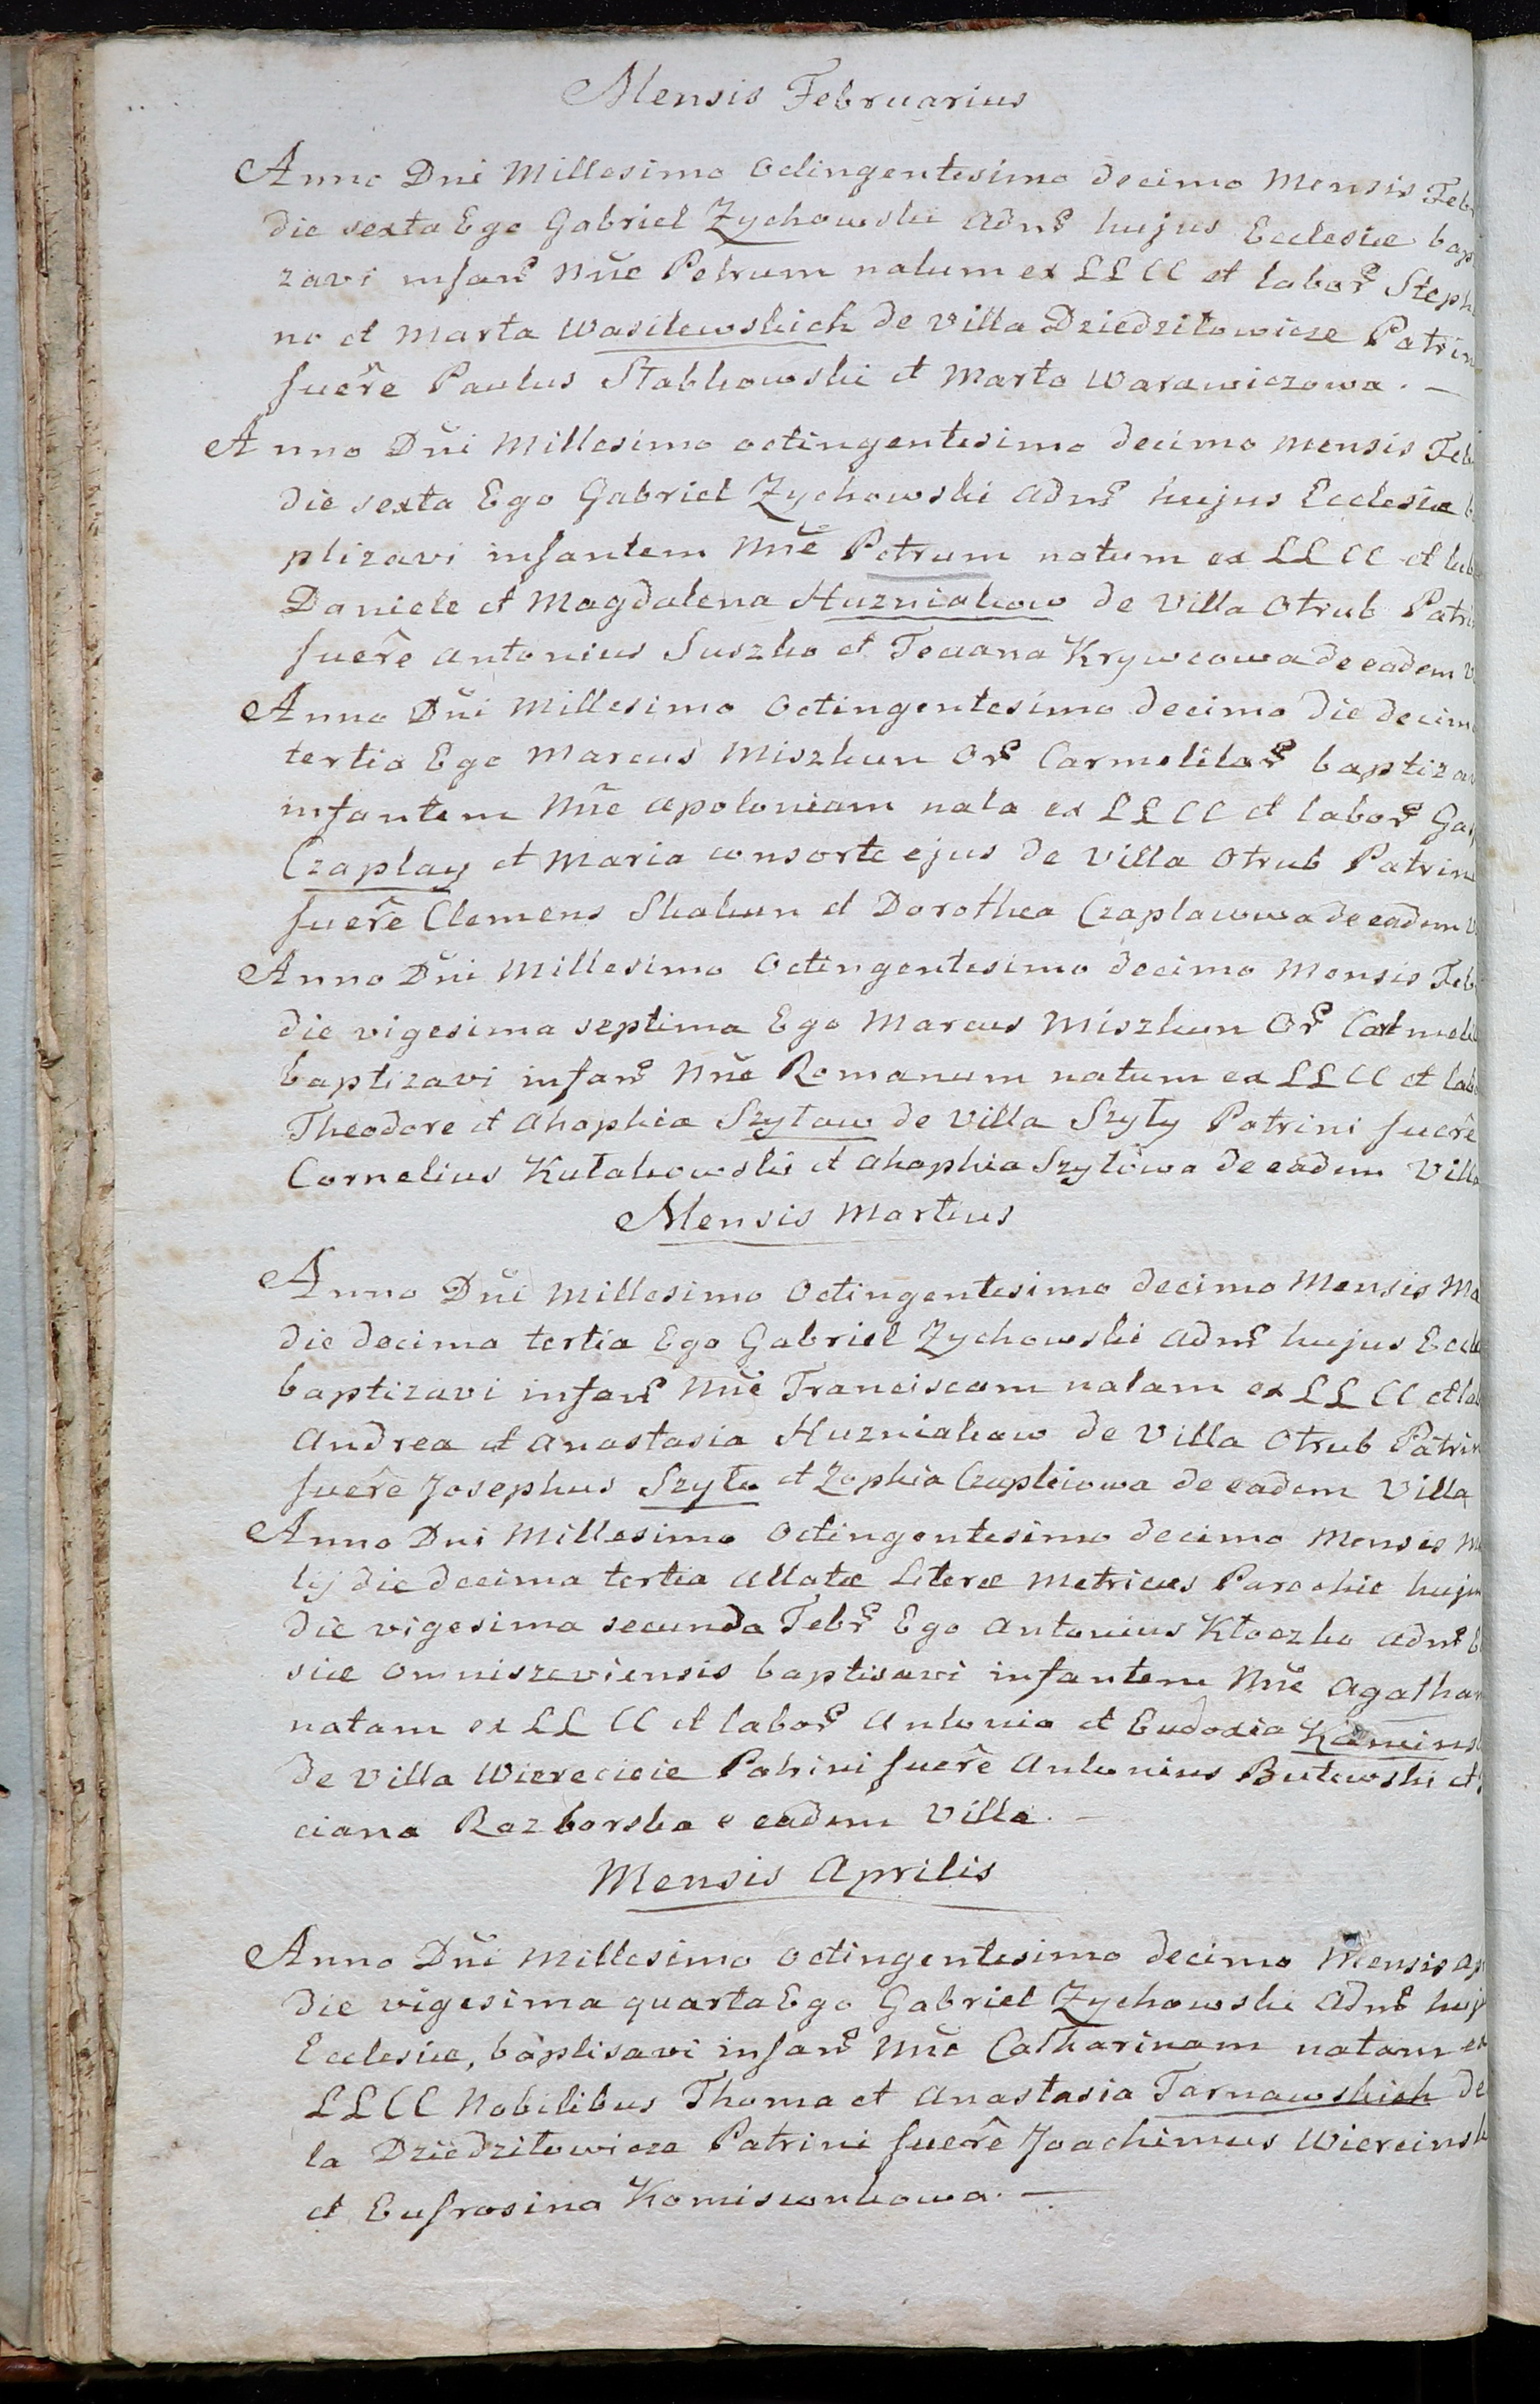 Mensis Februarius
Anno Dni Millesimo octingentesimo decimo Mensis Febr
die sexta Ego Gabriel Zychowski Adnr hujus Ecclesiæ bap
zavi infanr Nne Petrum natum ex LLCC et labor Steph
no et Marta Wasilewskich de Villa Dziedziłowicze Patrin
fuere Paulus Stabkowski et Marta Warawiczowa. —
Anno Dni Millesimo octingentesimo decimo Mensis Feb
die sexta Ego Gabriel Zychowski Adnr hujus Ecclesiæ b
ptizavi infantem Nne Petrum natum ex LLCC et lab
Daniele et Magdalena Huzniakow de Villa Otrub Patri
fuere Antonius Suszko et Teciana Krywcowa de eadem V
Anno Dni Millesimo Octingentesimo decimo die decima
tertia Ego Marcus Miszkun Or Carmelitar baptizav
infantem Nne Apoloniam nata ex LLCC et labor Gas
Czaplay et Maria consorte ejus de Villa Otrub Patrin
fuere Clemens Skakun et Dorothea Czaplawwa de eadem V
Anno Dni Millesimo Octingentesimo decimo Mensis Feb
die vigesima septima Ego Marcus Miszkun Or Carmeli
baptizavi infanr Nne Romanum natum ex LLCC et labo
Theodore et Ahaphia Szytow de Villa Szyły Patrini fuere
Cornelius Kułakowski et Ahaphia Szytowa de eadem Villa
Mensis Martius
Anno Dni Millesimo Octingentesimo decimo Mensis Ma
die decima tertia Ego Gabriel Zychowski Adnr hujus Eccle
baptizavi infanr Nne Franciscam natam ex LLCC et lab
Andrea et Anastasia Huzniakow de Villa Otrub Patrin
fuere Josephus Szyła et Zophia Czapliowa de eadem Villa
Anno Dni Millesimo Octingentesimo decimo Mensis M
tij die decima tertia allatæ Literæ Metrices Parochie huju
die vigesima secunda Febr Ego Antonius Kłoczko Adnr E
siæ Omniszeviensis baptisavi infantem Nne Agatham
natam ex LLCC et labor Antonio et Eudoxia Kamins
de Villa Wierecieie Patrini fuere Antonius Butewski et
ciana Razborska e eadem Villa. —
Mensis Aprilis
Anno Dni Millesimo Octingentesimo decimo Mensis Ap
die vigesima quarta Ego Gabriel Zychowski Adnr huj
Ecclesiæ, baptisavi infanr Nne Catharinam natam ex
LLCC Nobilibus Thoma et Anastasia Tarnawskich de
la Dziedziłowicze Patrini fuere Joachimus Wiercinsk
et Eufrosina Komisionkowa. —